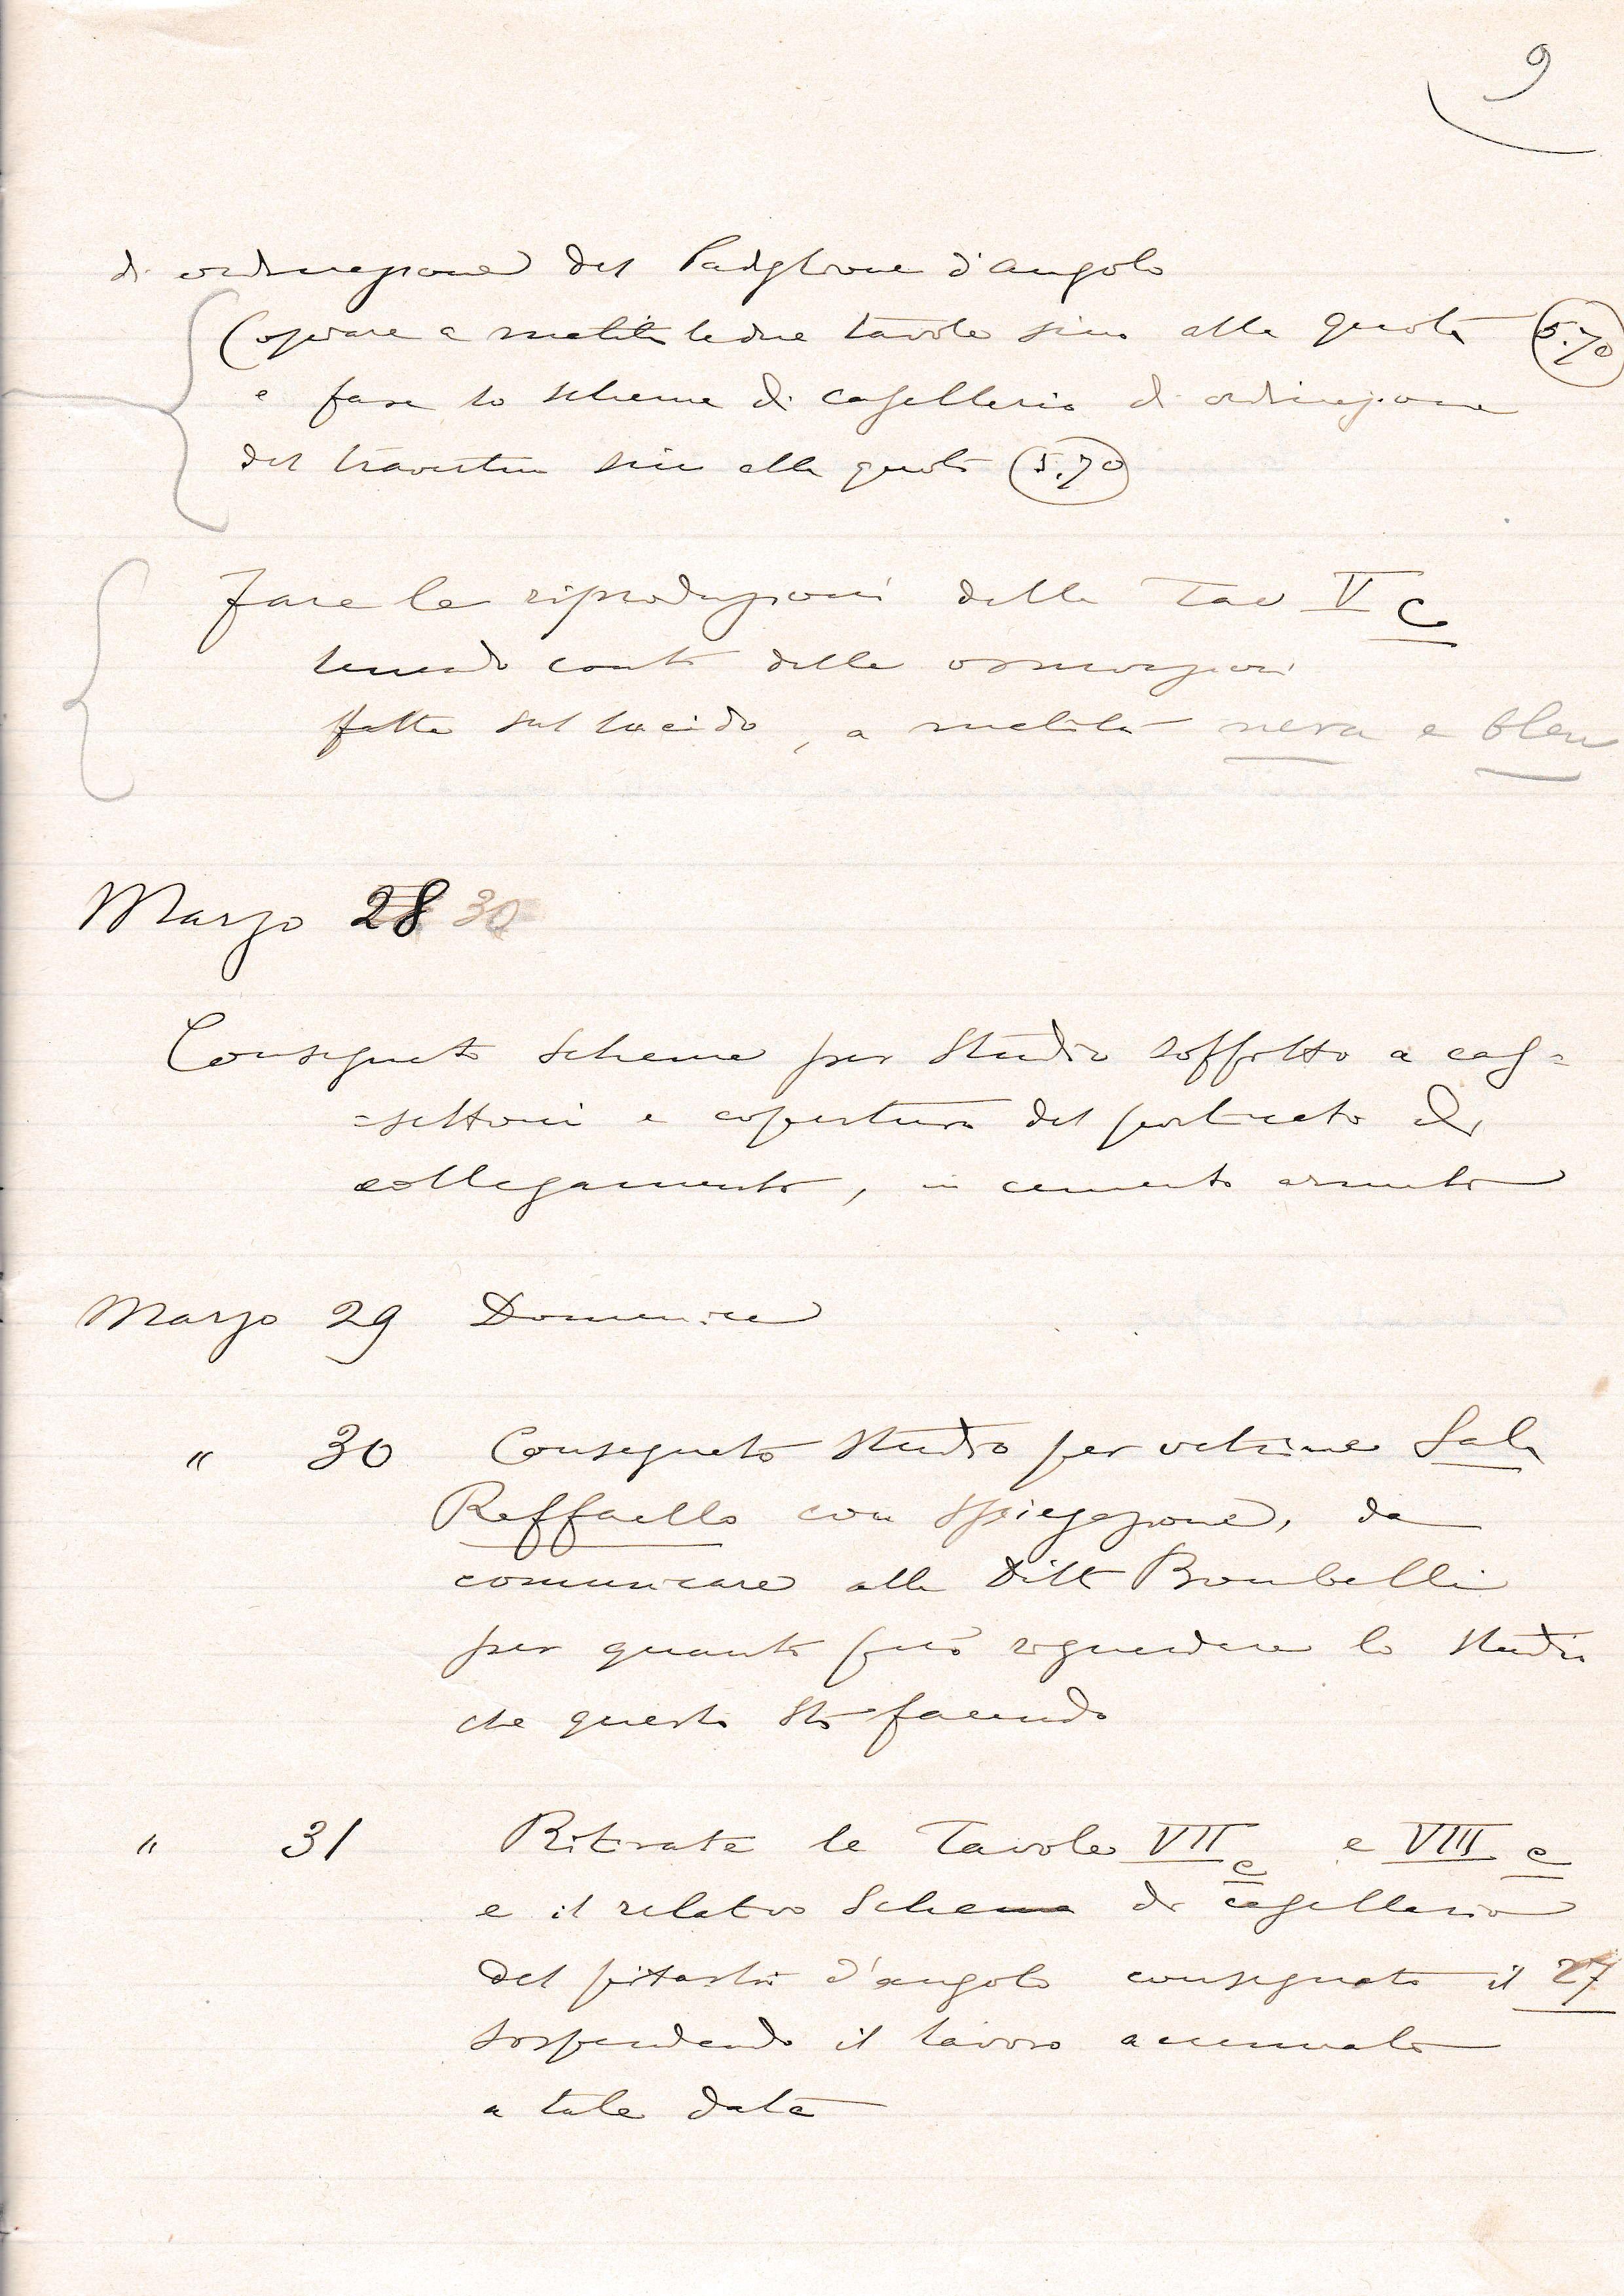 9
di ordinazione del Padiglione d'angolo
Copiare a matita le due tavole sino alla quota 5.70
e fare lo schema di casellario di ordinazione
del travertino sino alla quota 5.70
Fare le riproduzioni della Tav V C
tenendo conto delle osservazioni
fatte sul lucido, a matita nera e bleu
Marzo 28 30
Consegnato schema per studio soffitto a cas=
=settoni e copertura del porticato di
collegamento, in cemento armato
Marzo 29 Domenica
" 30 Consegnato studio per vetrine Sala
Raffaello con spiegazione, da
comunicare alla Ditt Bombelli
per quanto può riguardare lo studio
che questa sta facendo
" 31 Ritirate le Tavole VII c e VIII c
e il relativo Schema di casellario
del pilastro d'angolo consegnato il 27
sospendendo il lavoro accennato
a tale data